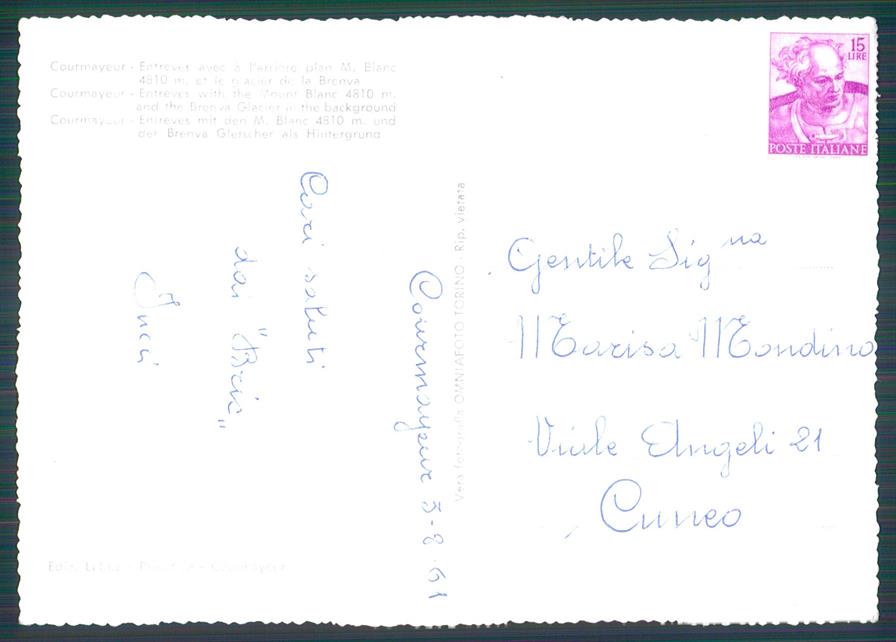 Courmayeur - Entreves avec à l'arrière plan M. Blanc
4810 m. et le glacier de la Brenva
Courmayeur - Entreves with the Mount Blanc 4810 m.
and the Brenva Glacier in the background
Courmayeur - Entreves mit den M. Blanc 4810 m. und
der Brenva Gletscher als Hintergrund
15
LIRE
POSTE ITALIANE
Courmayeur 5-8-61
Cari saluti
dai "Bric"
Vera fotografia OMNIAFOTO TORINO - Rip. vietata
Gentile Sig.na
Marisa Mondino
Viale Angeli 21
Cuneo
Ediz. - Courmayeur